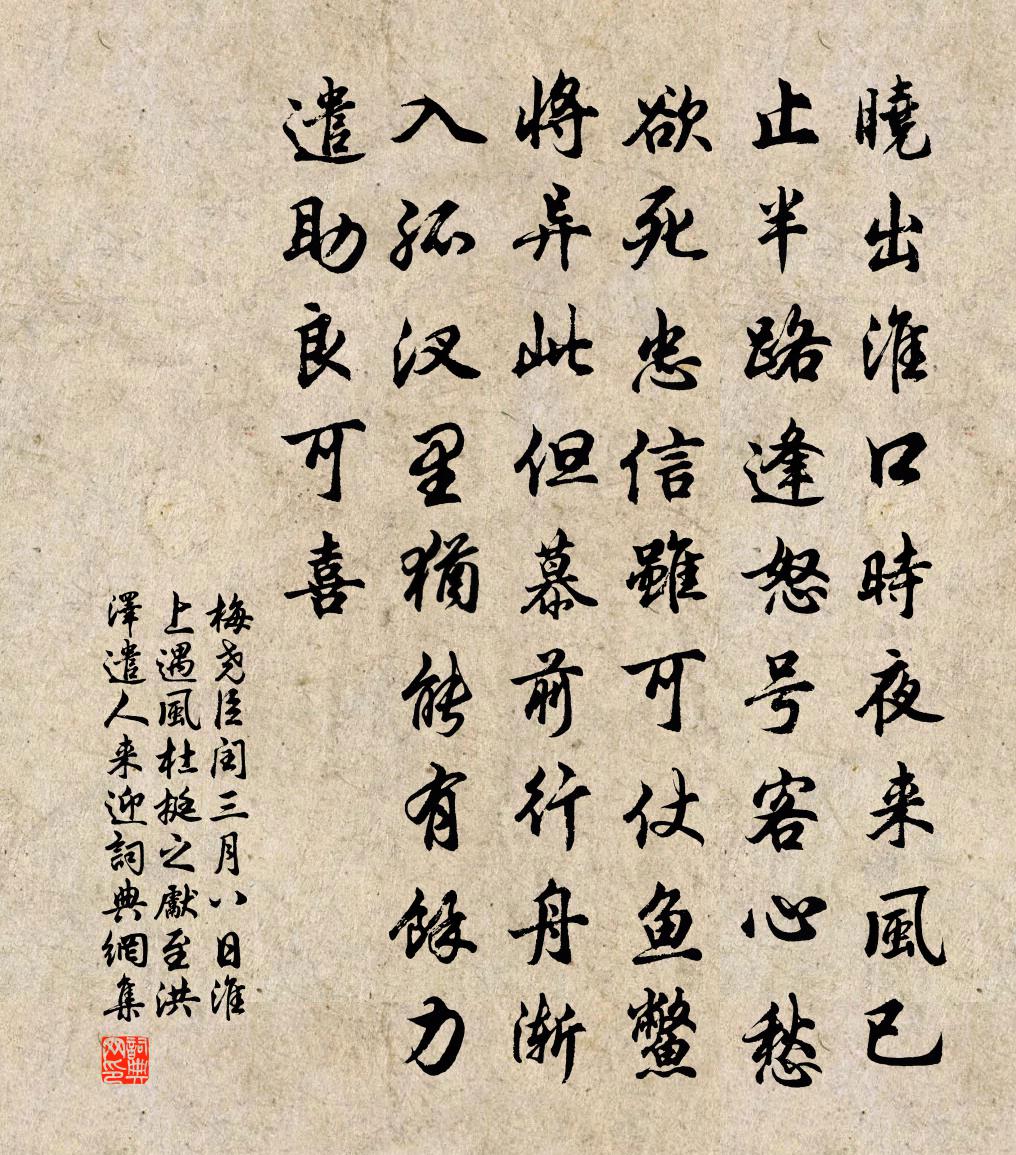 曉出淮口時夜来風已
止半路逢怒号客心愁
欲死忠信雖可仗鱼鱉
将异此但慕前行舟渐
入孤汊里猶能有餘力
遣助良可喜
梅尧臣闰三月八日淮
上遇風杜挺之獻至洪
澤遣人来迎詞典網集
詞典网印